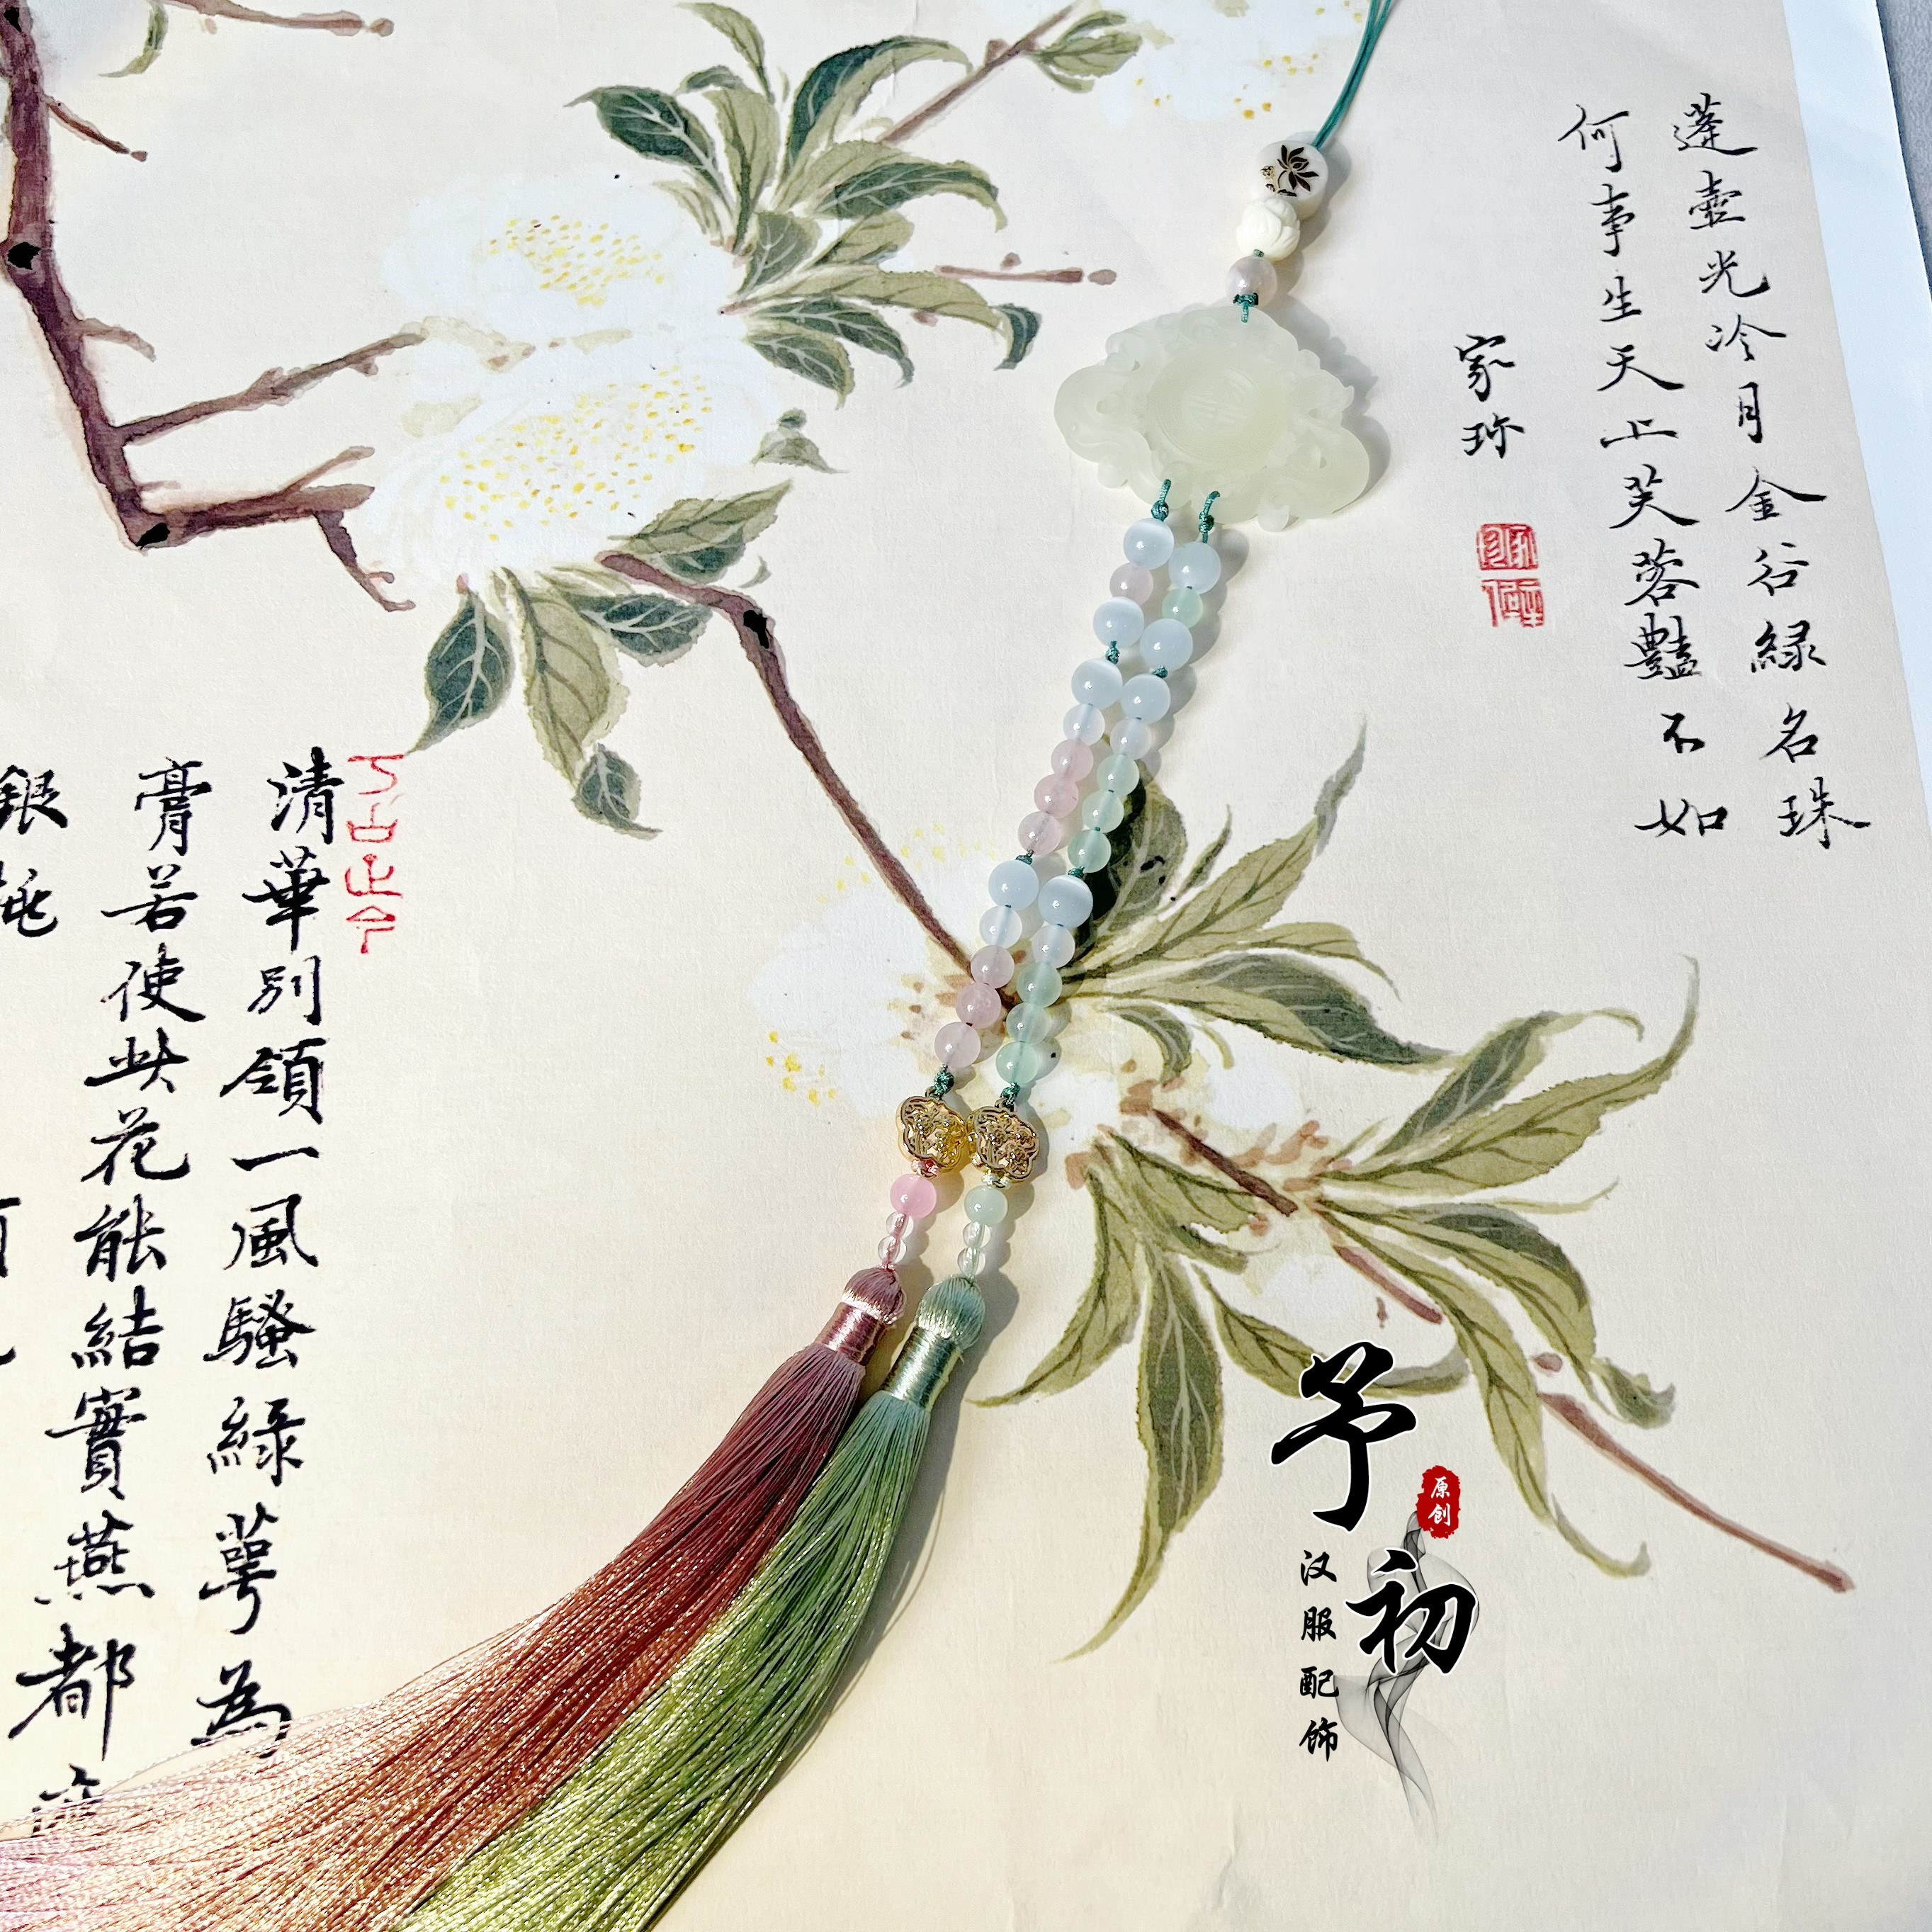 蓬壺光冷月金谷緑名珠
何事生天上芙蓉豔不如
家珍
清華別領一風騷緑萼為
膏若使此花能結實燕都
銀桃
予初
原创
汉服配饰